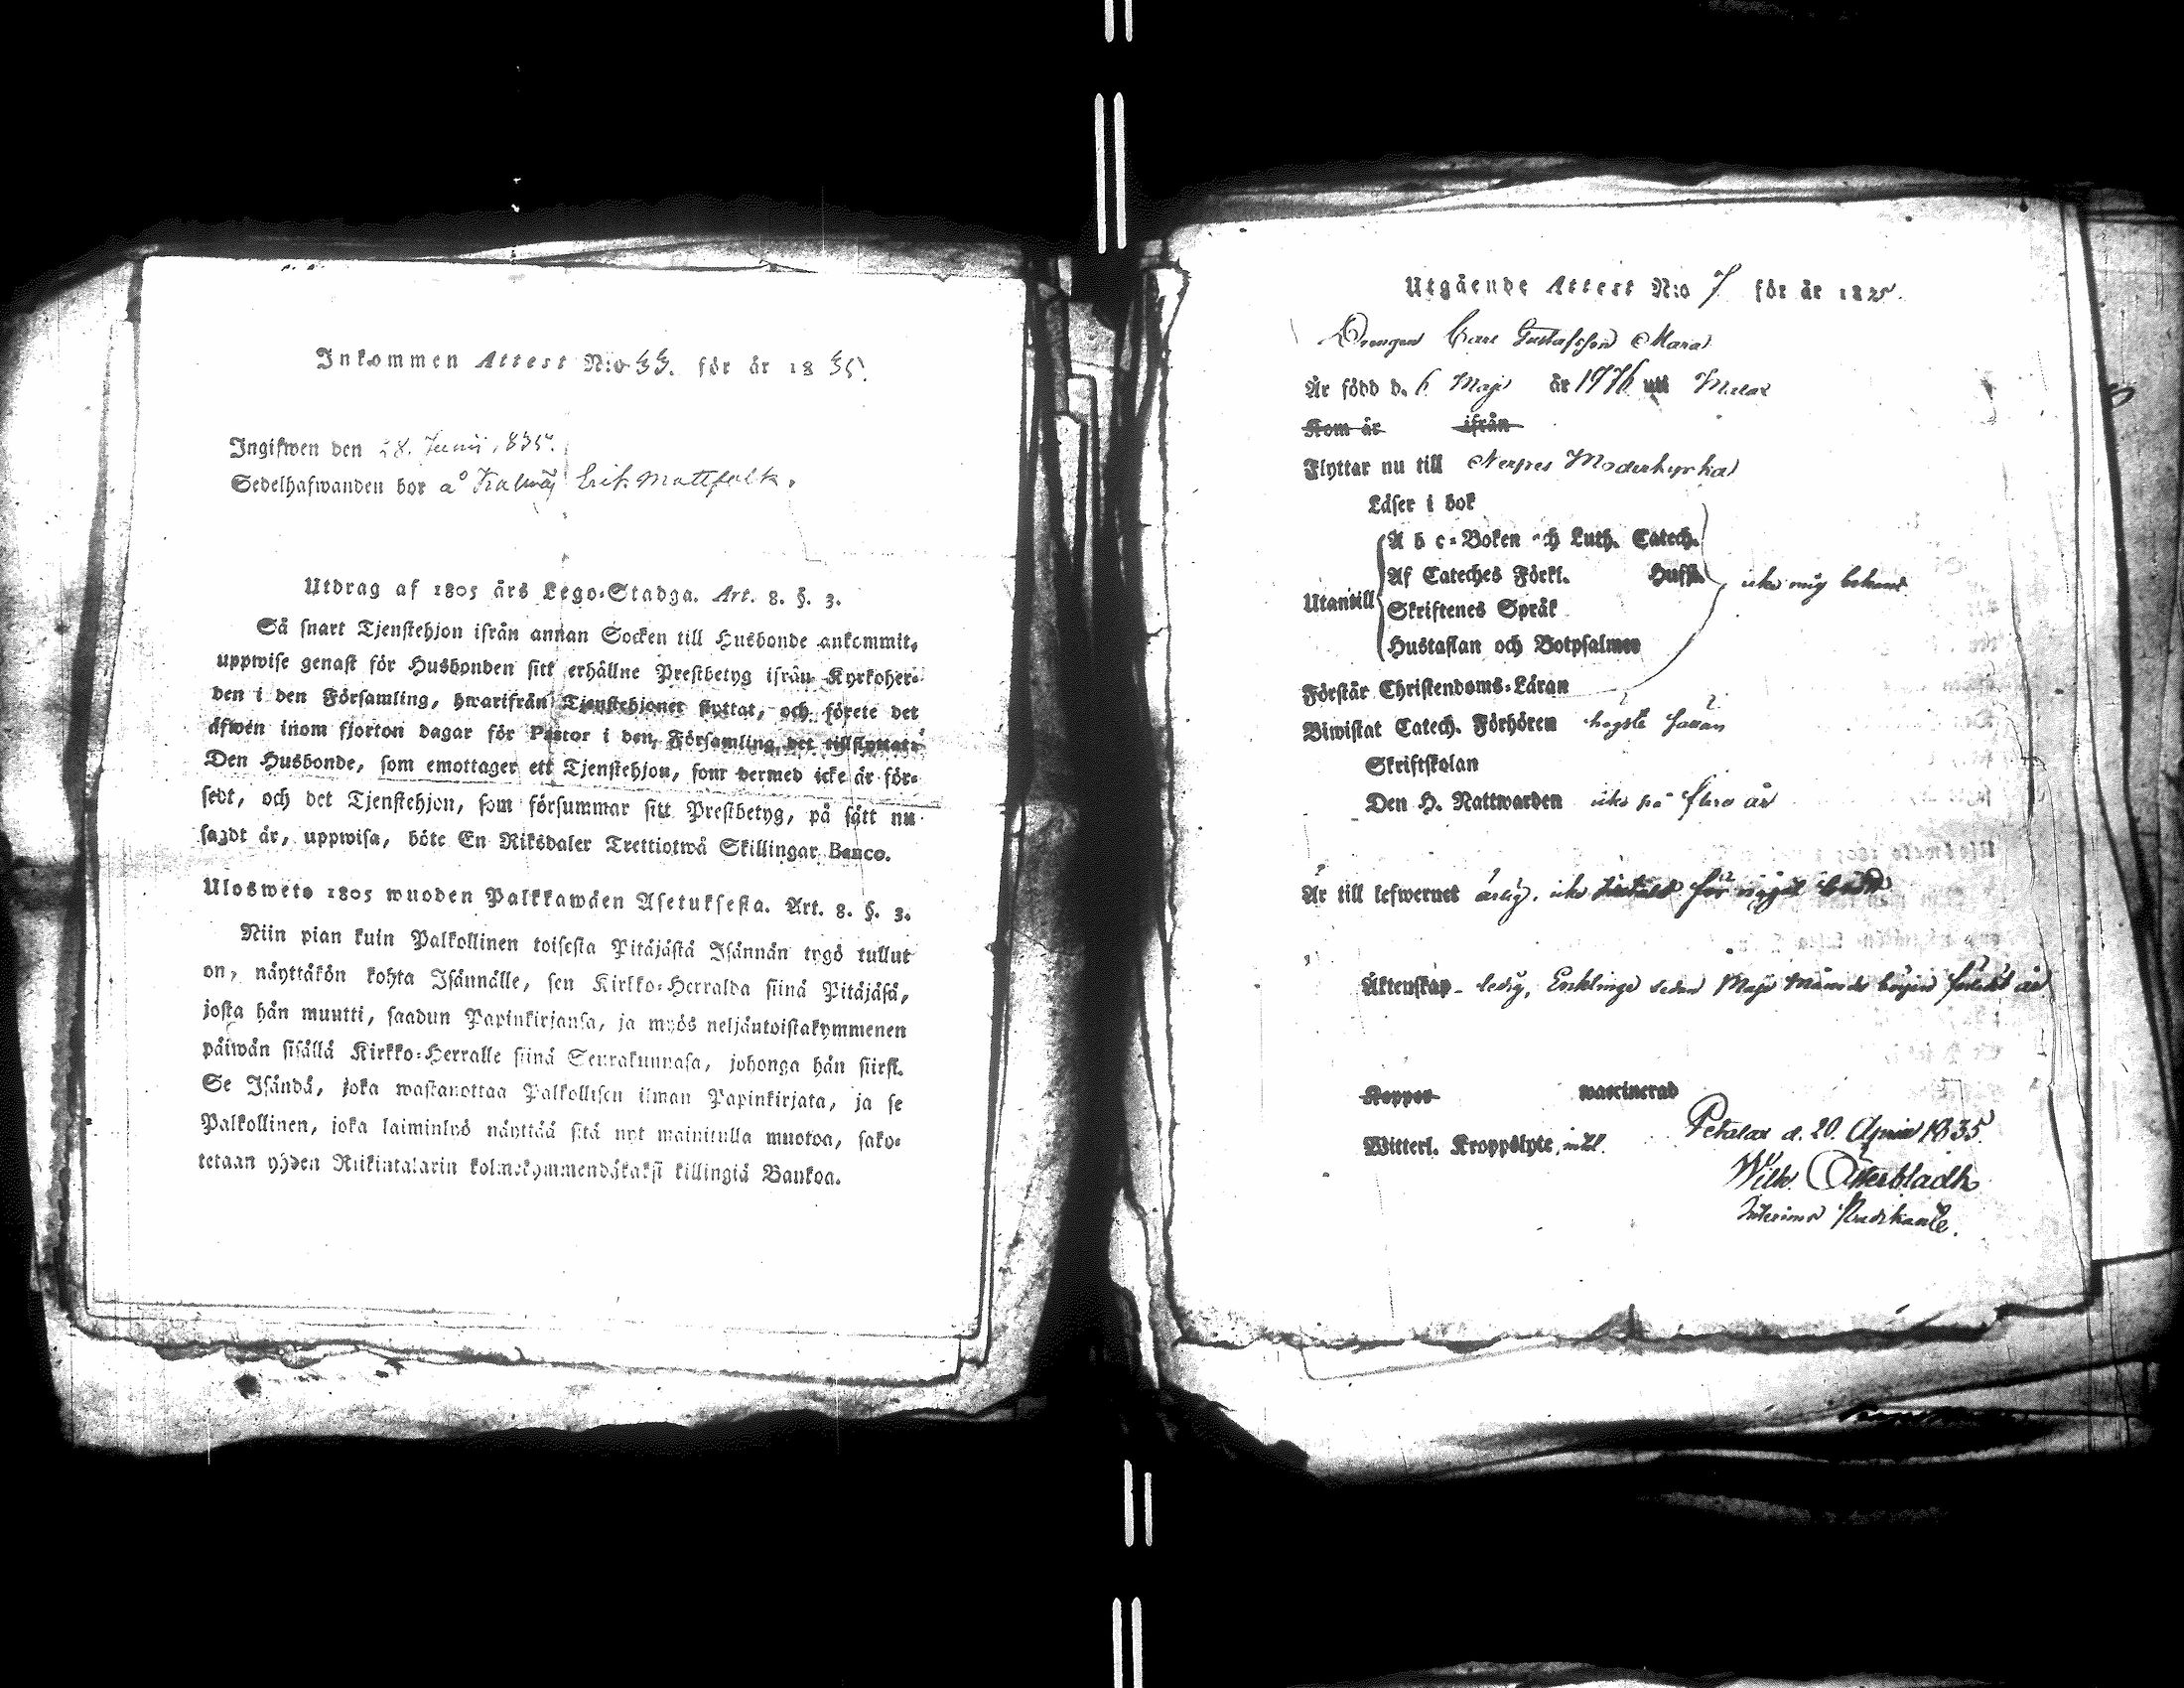 Inkommen Attest N:o 33. för år 1835.
Ingifwen den 28. Junii 1835.
Sedelhafwanden bor å Kalnäs Erik Mattfolk.
Utdrag af 1805 års Lego-Stadga. Art. 8. §. 3.
Så snart Tjenstehjon ifrån annan Socken till Husbonde ankommit,
uppwise genast för Husbonden sitt erhållne Prestbetyg ifrån Kyrkoher-
den i den Församling, hwarifrån Tjenstehjonet flyttat, och förete det
äfwen inom fjorton dagar för Pastor i den Församling det tillflyttat.
Den Husbonde, som emottager ett Tjenstehjon, som dermed icke är för-
sedt, och det Tjenstehjon, som försummar sitt Prestbetyg, på sätt nu
sagdt är, uppwisa, böte En Riksdaler Trettiotwå Skillingar Banco.
Ulosweto 1805 wuoden Palkkawäen Asetuksesta. Art. 8. §. 3.
Niin pian kuin Palkollinen toisesta Pitäjästä Isännän tygö tullut
on, näyttäkön kohta Isännälle, sen Kirkko-Herralda siinä Pitäjäsä,
josta hän muutti, saadun Papinkirjansa, ja myös neljäntoistakymmenen
päiwän sisällä Kirkko-Herralle siinä Seurakunnasa, johonga hän siirsi.
Se Isändä, joka wastanottaa Palkollisen ilman Papinkirjata, ja se
Palkollinen, joka laiminlyö näyttää sitä nyt mainitulla muotoa, sako-
tetaan yhden Riikintalarin kolmekymmendäkaksi killingiä Bankoa.
Utgående Attest N:o 7 för år 1835.
Drengen Carl Gustafsson Mara
Är född d. 6 Maji år 1776 uti
Kom år ifrån
Flyttar nu till Nerpes Moderkyrka
Läser i bok
A b c-Boken och Luth. Catech.
Af Cateches Förkl. Hufs. icke mig bekant
Utantill
Skriftenes Språk
Hustaflan och Botpsalmer
Förstår Christendoms-Läran
Biwistat Catech. Förhören högst sällan
Skriftskolan
Den H. Nattwarden icke på flere år
Är till lefwernet ärlig, icke för något brott
Äktenskap ledig, Enkling sedan Maji Månads början år
Koppor vaccinerad
Witterl. Kroppslyte, intet.
Petalax d. 20. April 1835.
Wilh. Åkerbladh
Interims Predikant.